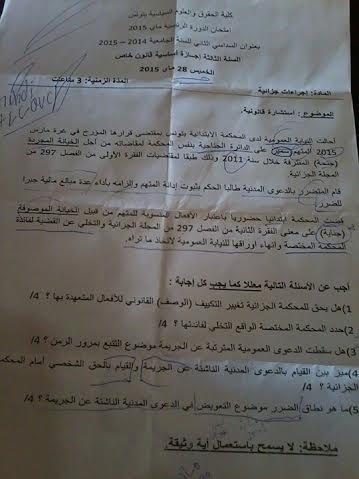 كلية الحقوق والعلوم السياسية بتونس
امتحان الدورة الرئيسية ماي 2015
بعنوان السداسي الثاني للسنة الجامعية 2014 – 2015
السنة الثالثة إجازة أساسية قانون خاص
الخميس 28 ماي 2015
المادة: إجراءات جزائية
المدة الزمنية: 3 ساعات
الموضوع : استشارة قانونية.
أحالت النيابة العمومية لدى المحكمة الابتدائية بتونس بمقتضى قرارها المؤرخ في غرة مارس
2015 المتهم على الدائرة الجناحية بنفس المحكمة لمقاضاته من أجل الخيانة المجردة
(جنحة) المقترفة خلال سنة 2011 وذلك طبقا لمقتضيات الفقرة الأولى من الفصل 297 من
المجلة الجزائية.
قام المتضرر بالدعوى المدنية طالبا الحكم بثبوت إدانة المتهم وإلزامه بأداء عدة مبالغ مالية جبرا
للضرر.
قضت المحكمة ابتدائيا حضوريا باعتبار الأفعال المنسوبة للمتهم من قبيل الخيانة الموصوفة
(جناية) على معنى الفقرة الثانية من الفصل 297 من المجلة الجزائية والتخلي عن القضية لفائدة
المحكمة المختصة وإنهاء أوراقها للنيابة العمومية لاتخاذ ما تراه.
أجب عن الأسئلة التالية معللا كما يجب كل إجابة :
1)هل يحق للمحكمة الجزائية تغيير التكييف (الوصف) القانوني للأفعال المتعهدة بها ؟ 4/
2)حدد المحكمة المختصة الواقع التخلي لفائدتها ؟ 4/
3)هل سقطت الدعوى العمومية المترتبة عن الجريمة موضوع التتبع بمرور الزمن ؟ 4/
4)ميز بين القيام بالدعوى المدنية الناشئة عن الجريمة والقيام بالحق الشخصي أمام المحكمة
الجزائية ؟ 4/
5)ما هو نطاق الضرر موضوع التعويض في الدعوى المدنية الناشئة عن الجريمة ؟ 4/
ملاحظة: لا يسمح باستعمال أية وثيقة.